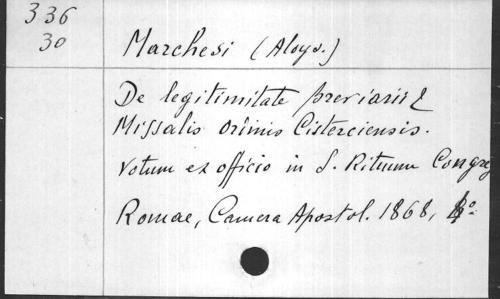 336
30
Marchesi (Aloys.)
De legitimitate breviarii &
Missalis Ordinis Cisterciensis.
Votum ex officio in S. Rituum Congreg
Romae, Camera Apostol. 1868,